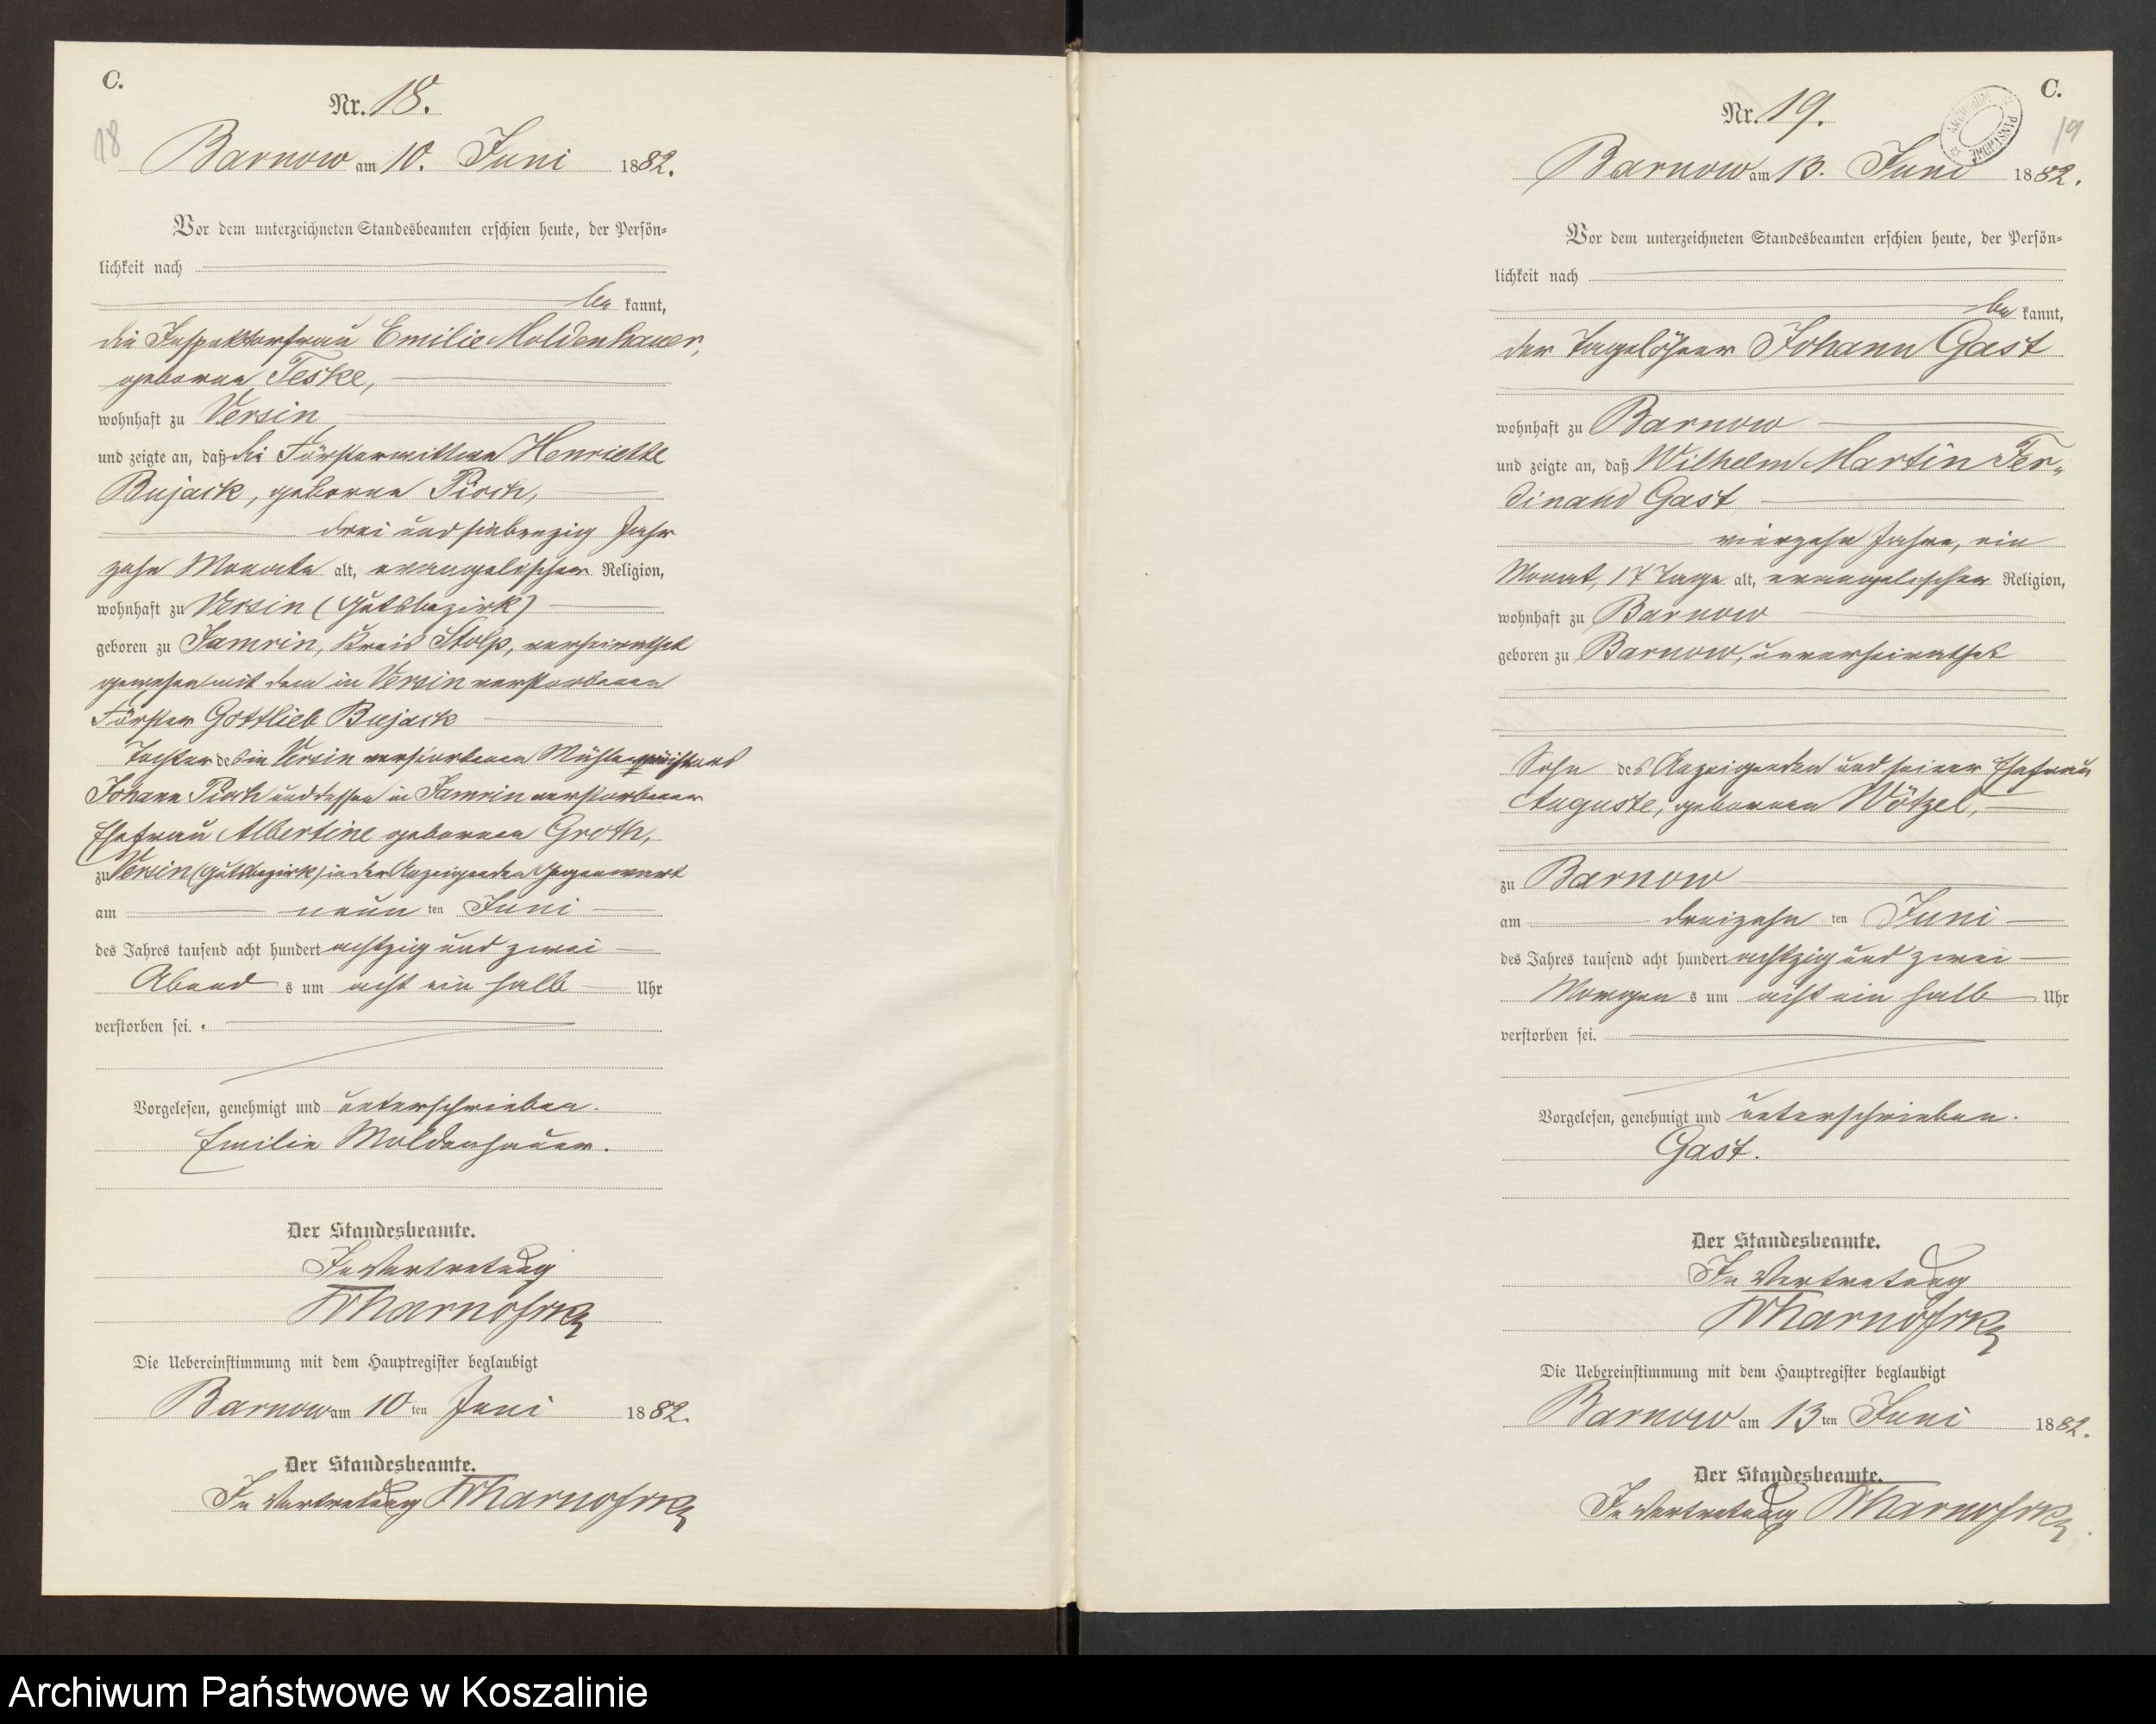 C.
Nr. 18.
18
Barnow am 10. Juni 1882.
Vor dem unterzeichneten Standesbeamten erschien heute, der Persön-
lichkeit nach
be kannt,
die Inspektorfrau Emilie Moldenhauer,
geborne Teske,
wohnhaft zu Versin
und zeigte an, daß die Försterwittwe Henriette
Bujack, geborne Pioch,
drei und siebenzig Jahr
zehn Monate alt, evangelischer Religion,
wohnhaft zu Versin (Gutsbezirk)
geboren zu Jamrin, Kreis Stolp, verheirathet
gewesen mit dem in Versin verstorbenen
Förster Gottlieb Bujack
Tochter des in Versin verstorbenen
Johann Pioch und dessen in Jamrin verstorbener
Ehefrau Albertine gebornen Groth,
zu Versin (Gutsbezirk) in der Anzeigenden Gegenwart
am neun ten Juni
des Jahres tausend acht hundert achtzig und zwei
Abend s um acht ein halb Uhr
verstorben sei.
Vorgelesen, genehmigt und unterschrieben.
Emilie Moldenhauer.
Der Standesbeamte.
In Vertretung
Die Uebereinstimmung mit dem Hauptregister beglaubigt
Barnow am 10 ten Juni 1882.
Der Standesbeamte.
In Vertretung
C.
Nr. 19.
19
Barnow am 13. Juni 1882.
Vor dem unterzeichneten Standesbeamten erschien heute, der Persön-
lichkeit nach
be kannt,
der Tagelöhner Johann Gast
wohnhaft zu Barnow
und zeigte an, daß Wilhelm Martin Fer-
dinand Gast
vierzehn Jahre, ein
Monat, 17 Tage alt, evangelischer Religion,
wohnhaft zu Barnow
geboren zu Barnow, unverheirathet
Sohn des Anzeigenden und seiner Ehefrau
Auguste, gebornen Wötzel,
zu Barnow
am dreizehn ten Juni
des Jahres tausend acht hundert achtzig und zwei
Morgen s um acht ein halb Uhr
verstorben sei.
Vorgelesen, genehmigt und unterschrieben.
Gast.
Der Standesbeamte.
In Vertretung
Die Uebereinstimmung mit dem Hauptregister beglaubigt
Barnow am 13 ten Juni 1882.
Der Standesbeamte.
In Vertretung
Archiwum Państwowe w Koszalinie